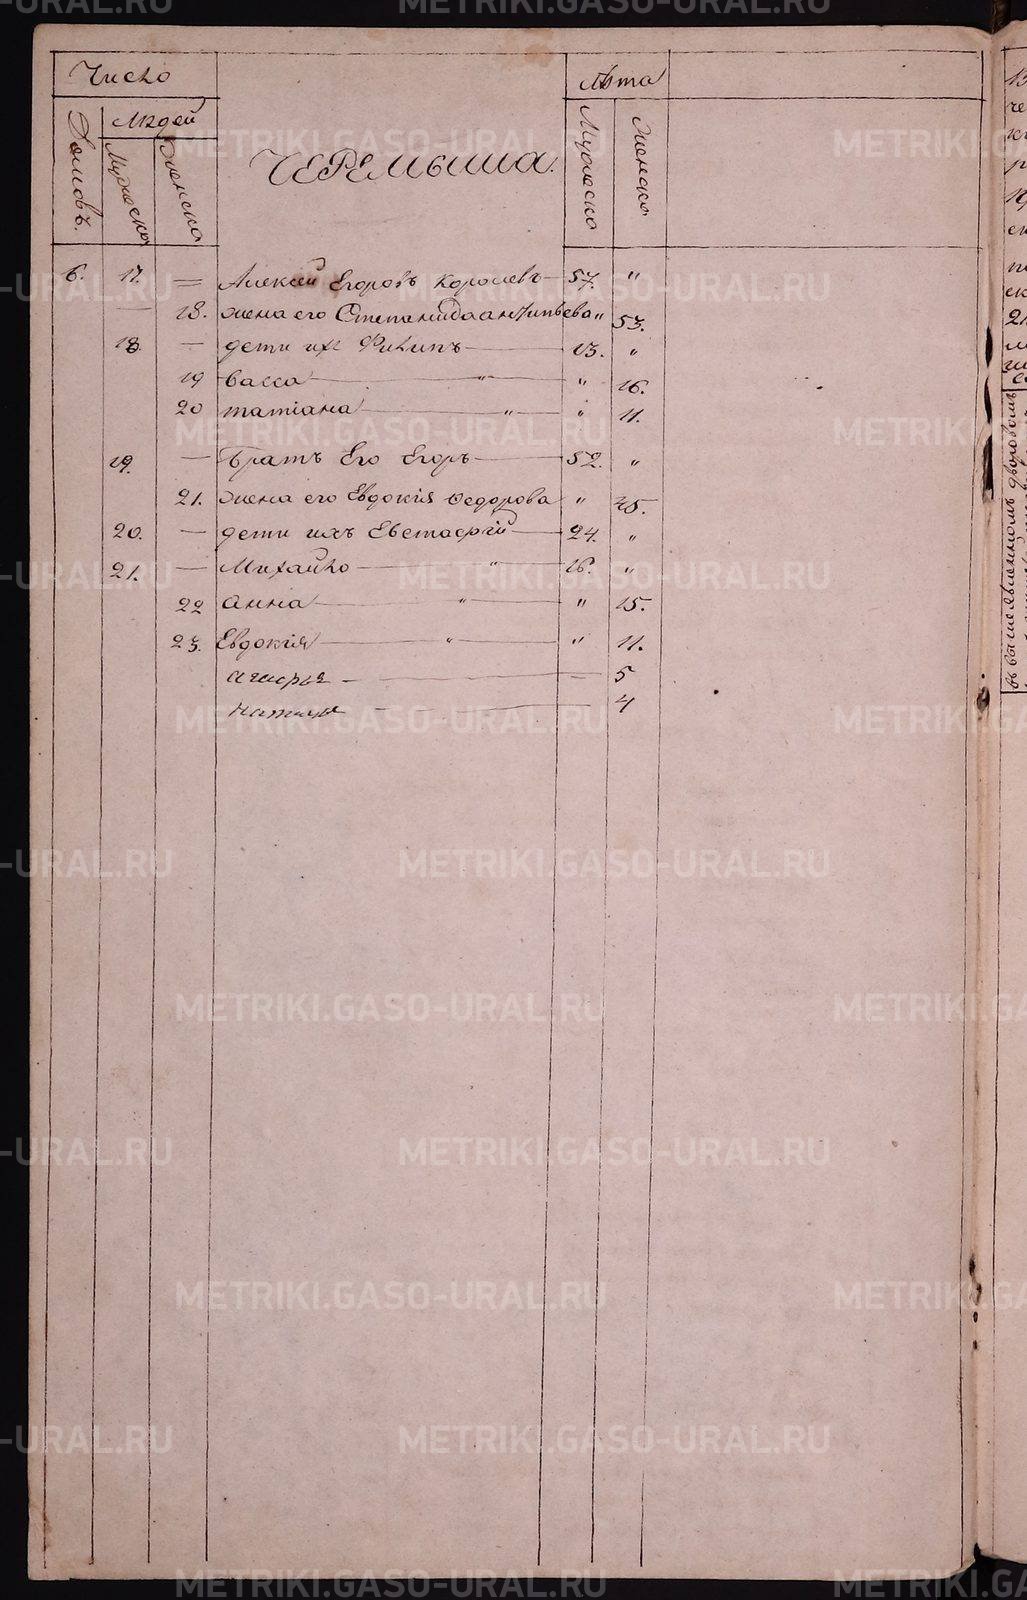 Число
Лѣта
Людей
Домовъ.
Мужеско
Женско
ЧЕРЕМЫША.
Мужеско
Женско
6. 17. — Алексей Егоровъ Королевъ — 57. "
— 18. жена его Степанида Антипьева " 53.
18. — дети ихъ Филипъ — 13. "
19 Васса — " — " 16.
20 татіана — " — " 11.
19. — Братъ Его Егоръ — 52. "
21. жена его Евдокія Федорова " 45.
20. — дети ихъ Евстафій — 24. "
21. — Михайло — " — 16. "
22 анна — " — " 15.
23. Евдокія — " — " 11.
— — 5
— — 4
METRIKI.GASO-URAL.RU